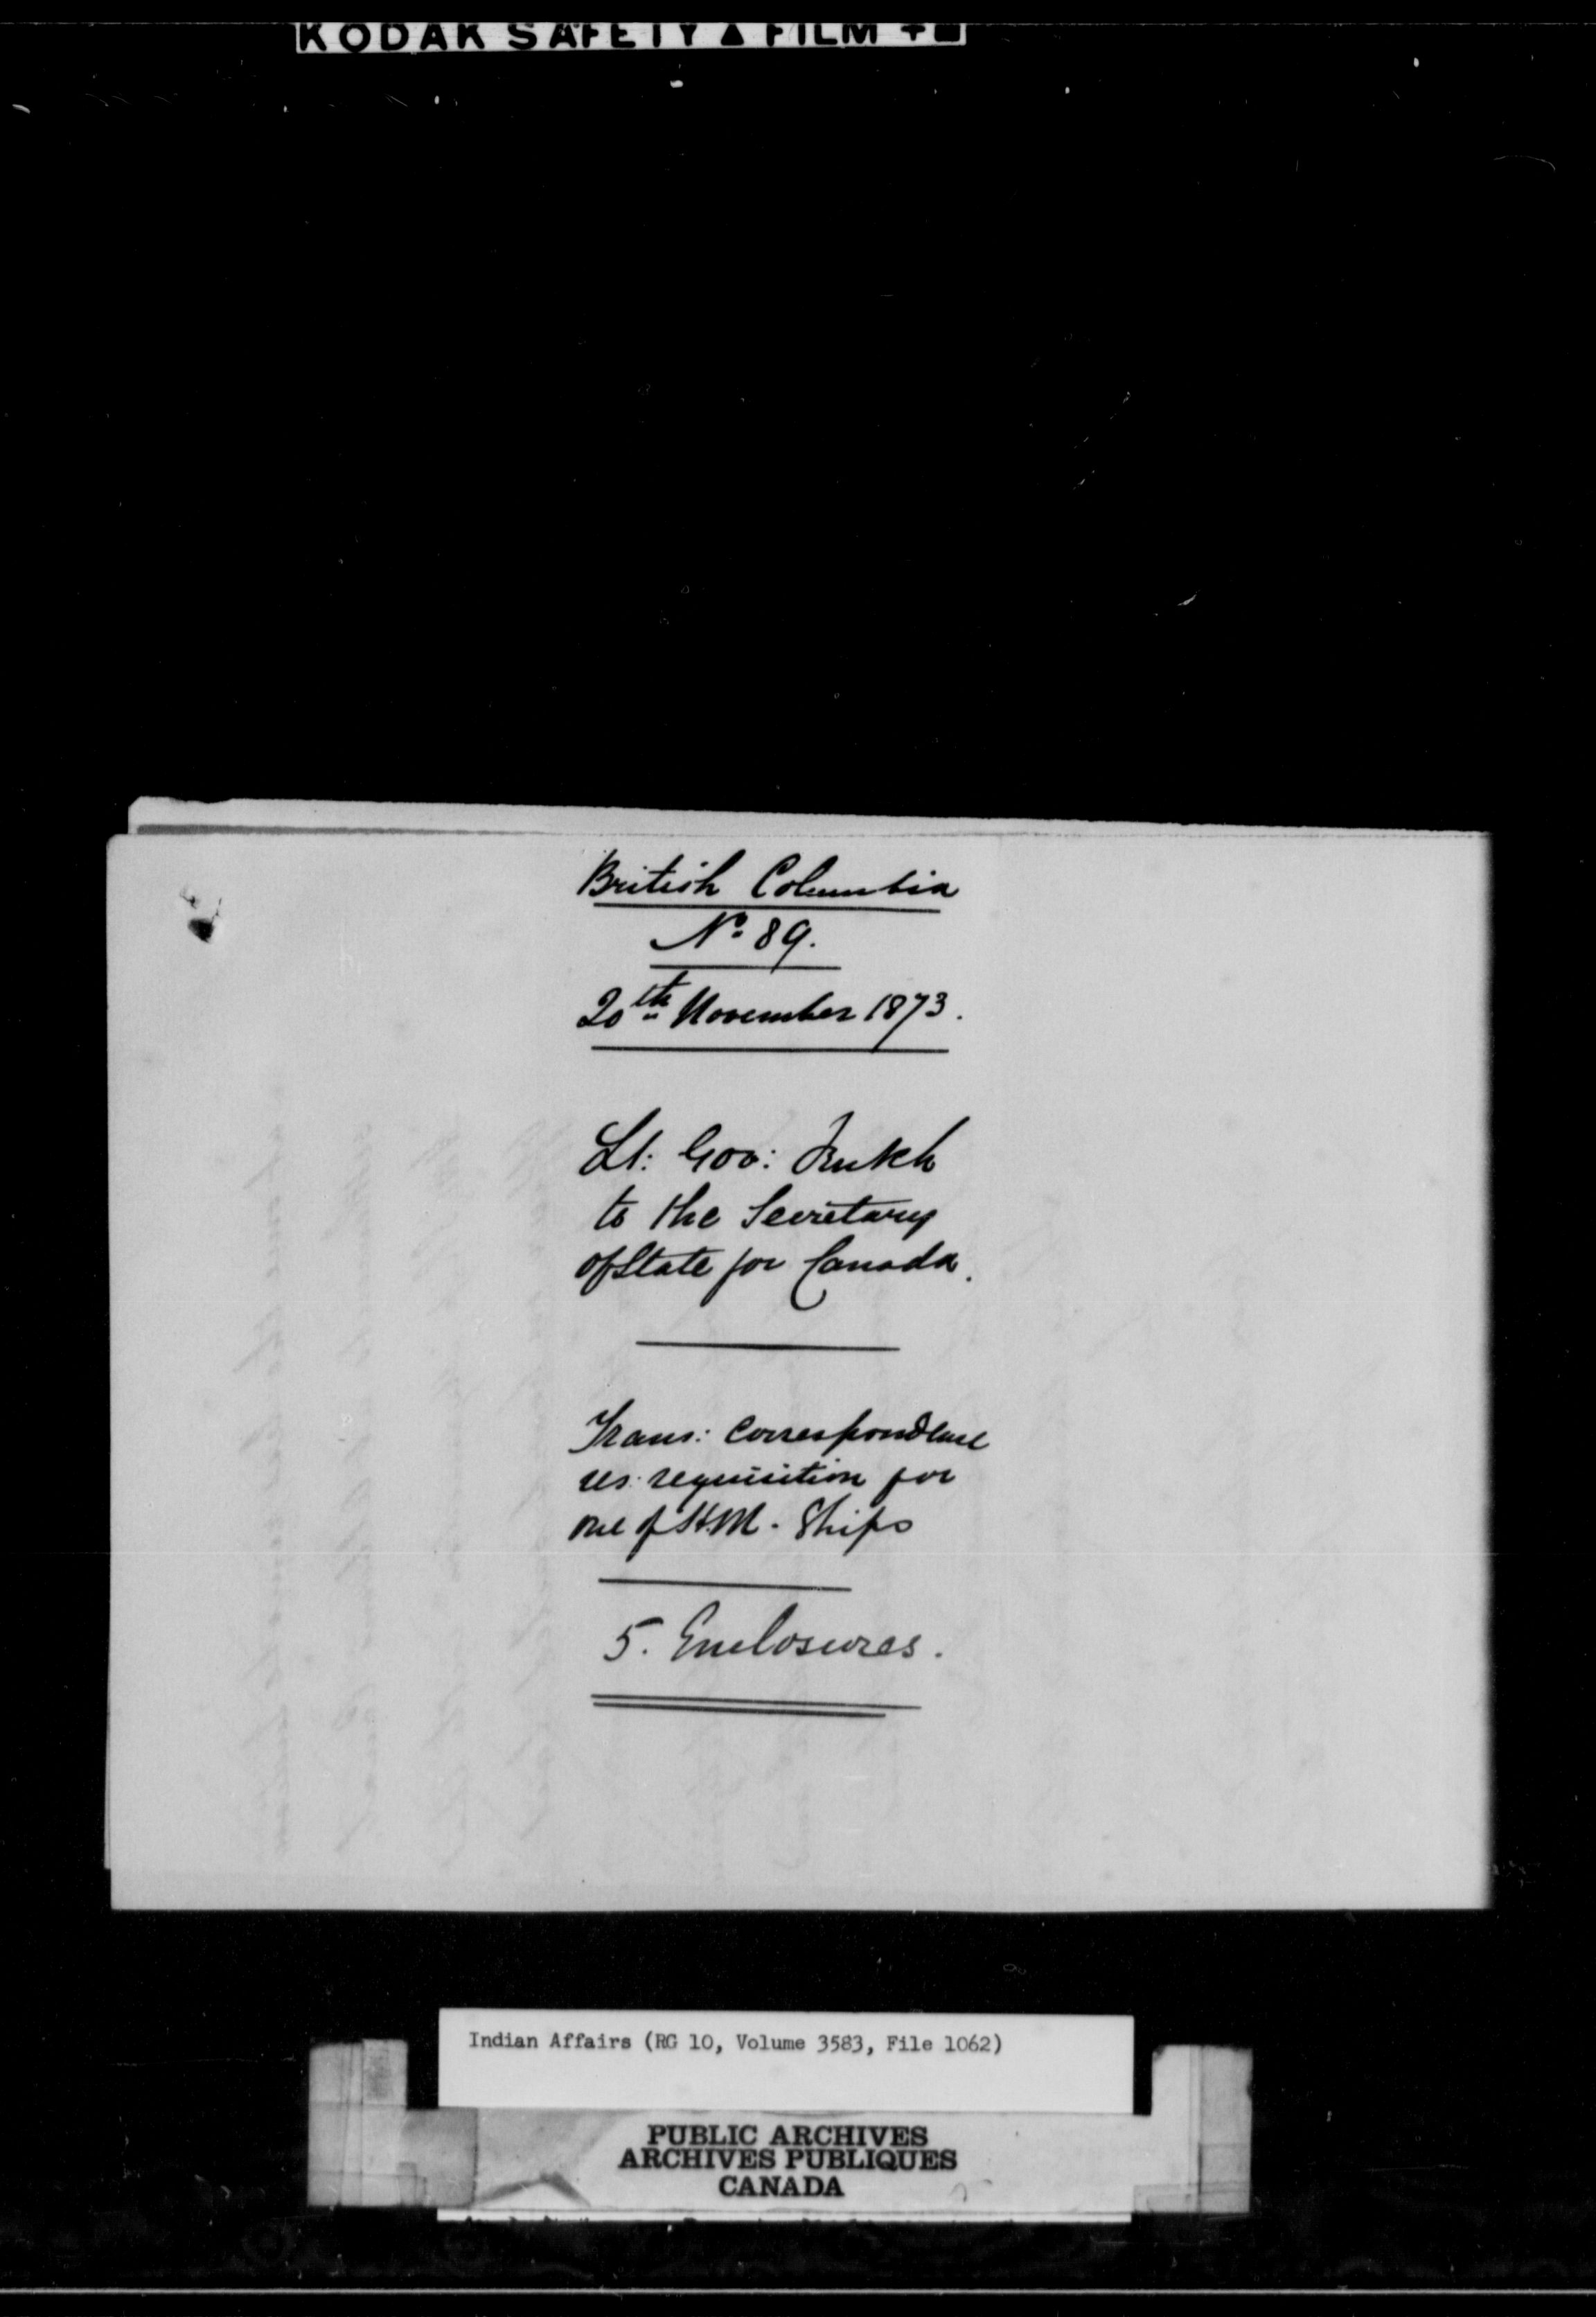 KODAK SAFETY ▲ FILM +
British Columbia
No. 89.
20th November 1873.
Lt: Gov: Trutch
to the Secretary
of State for Canada.
Trans: Correspondence
res: requisition for
one of H.M. Ships
5. Enclosures.
Indian Affairs (RG 10, Volume 3583, File 1062)
PUBLIC ARCHIVES
ARCHIVES PUBLIQUES
CANADA